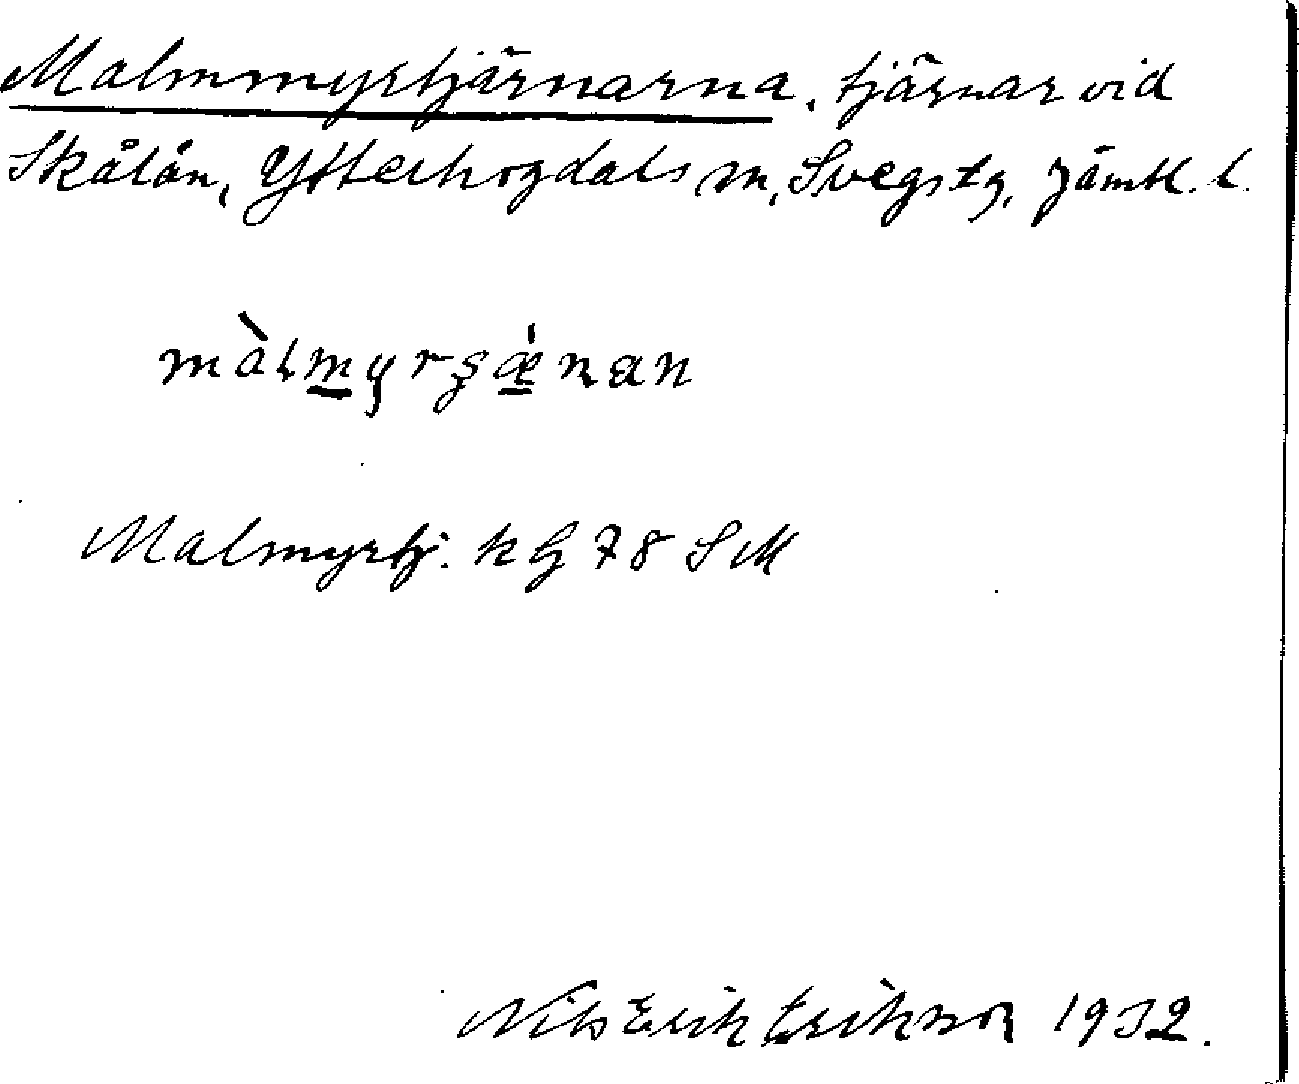 Malmmyrtjärnarna, tjärnar vid
Skålån, Ytterhogdals sn, Svegs tg, Jämtl. l.
màlmyrʂǽnan
Malmyrtj. k G 78 SM
Nils Erik Erikson 1932.